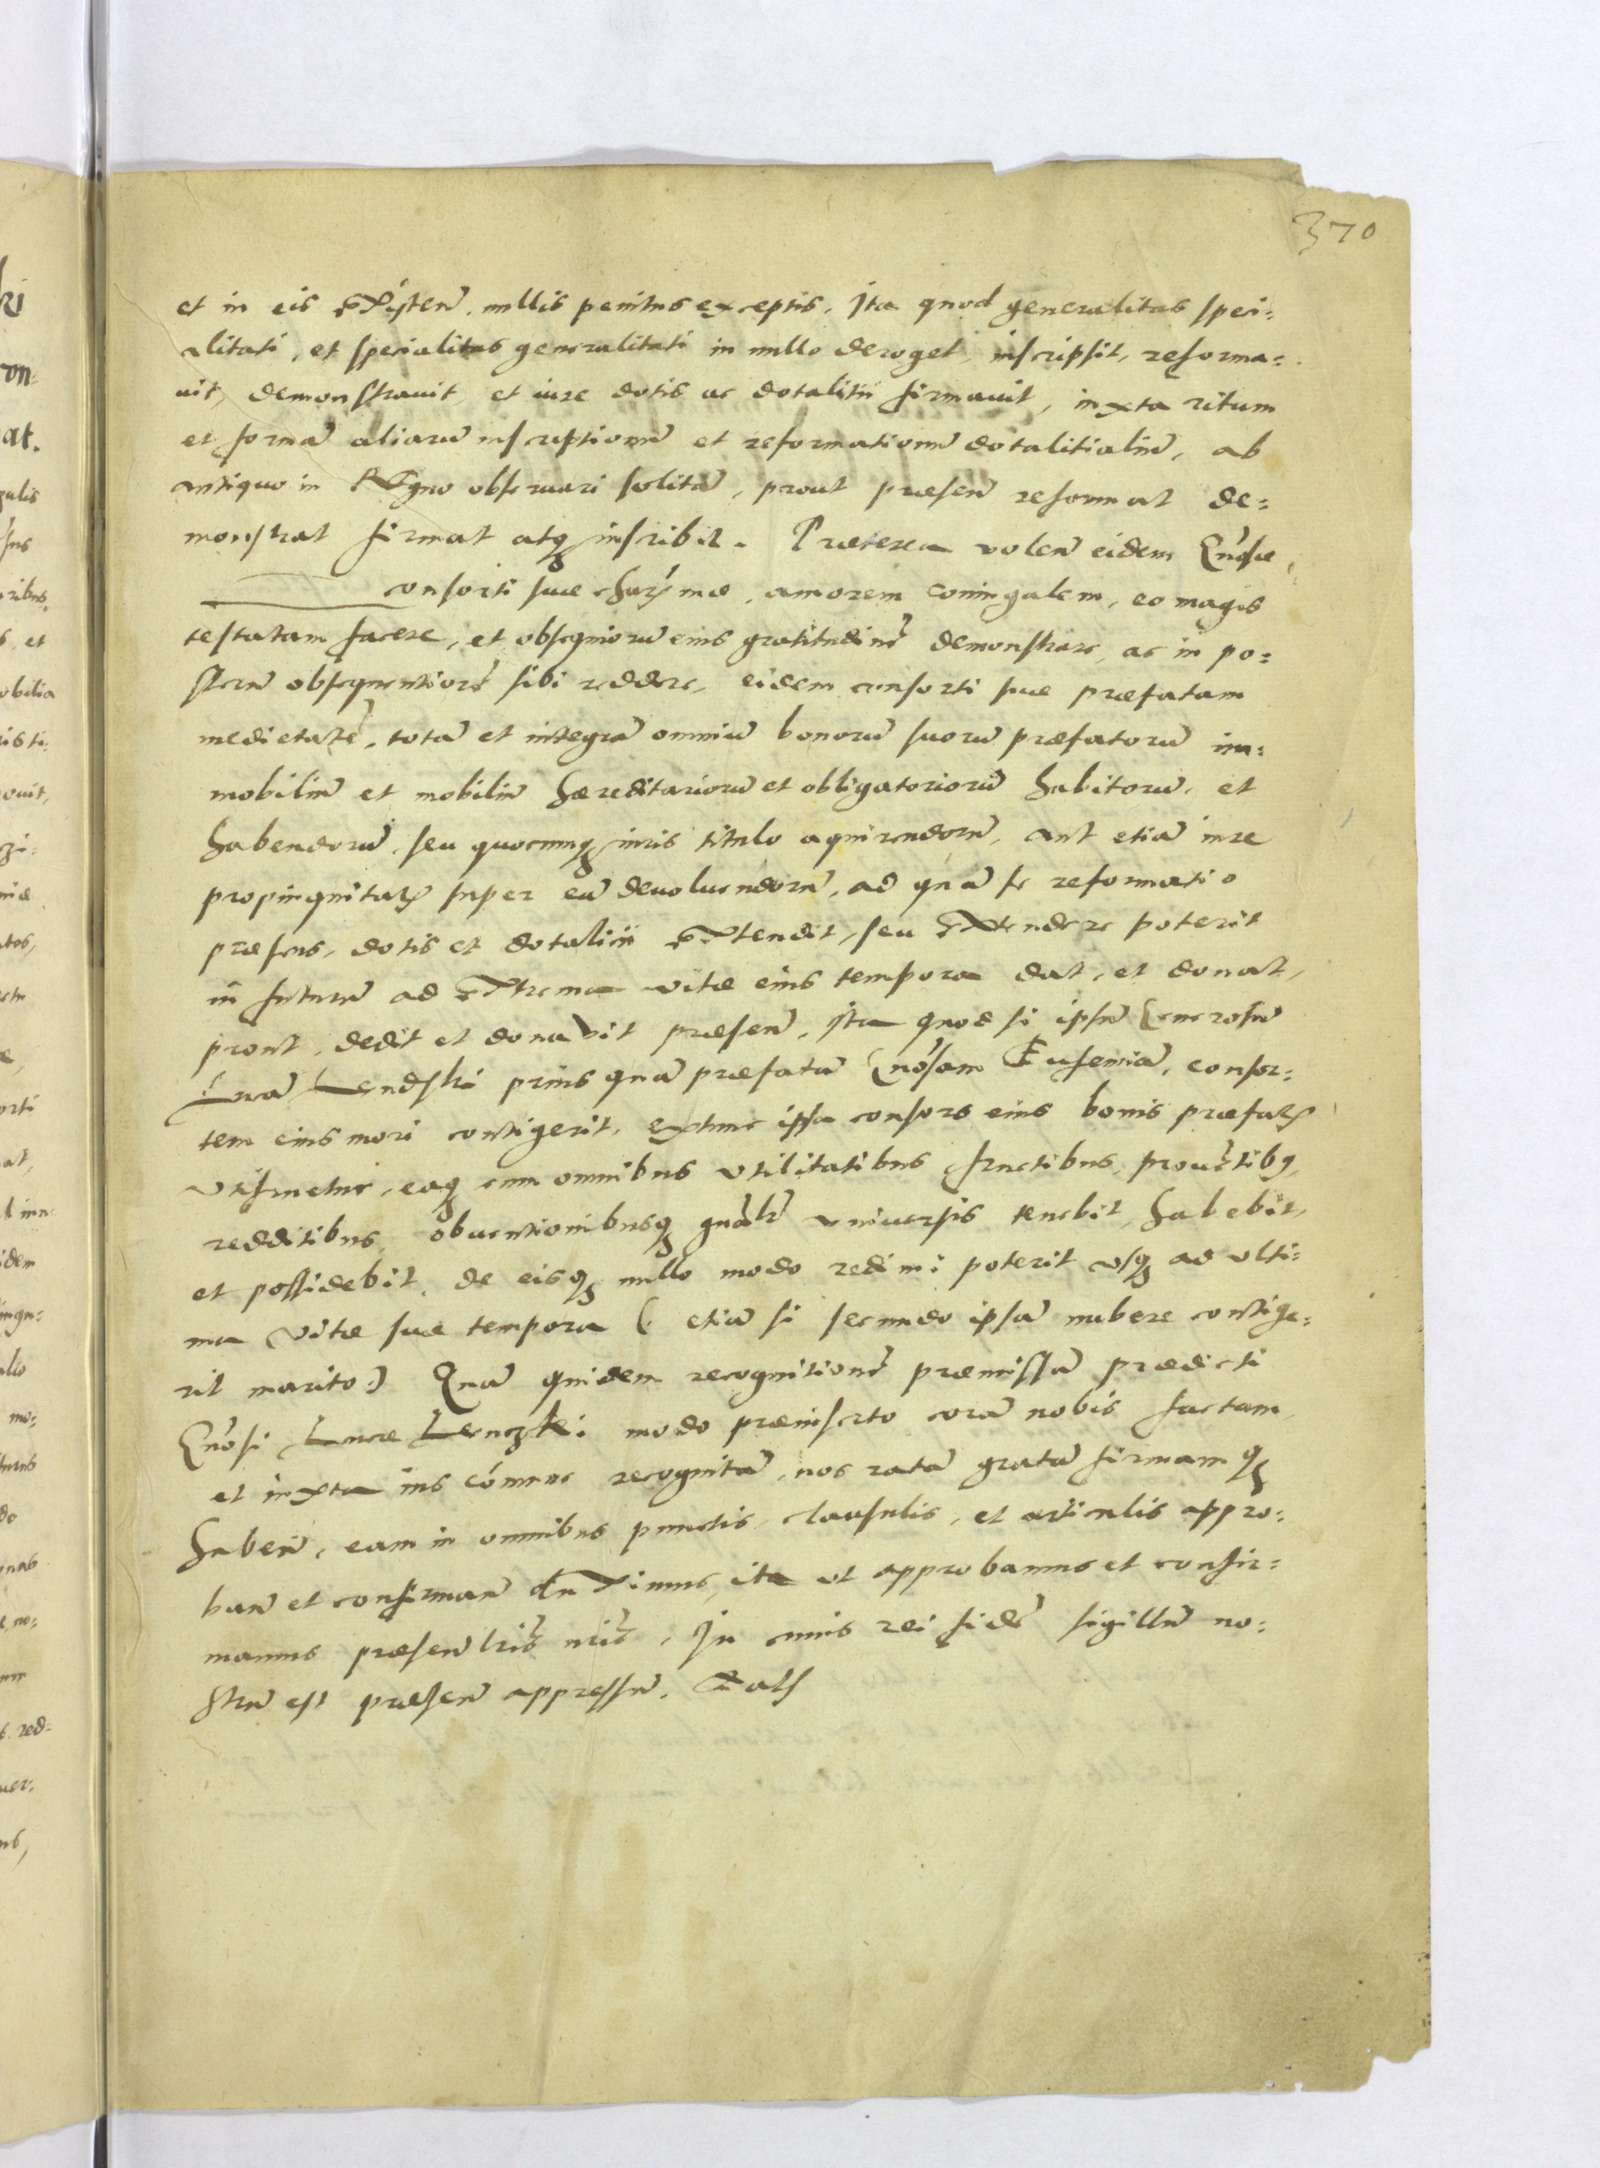 370
et in eis existeñ. nullis penitus exceptis. Ita quod generalitas speci:
alitati, et specialitas generalitati in nullo deroget, inscripsit, reforma:
uit, demonstrauit, et iure dotis ac dotalitii firmauit, iuxta ritum
et formã aliarũ inscriptionũ et reformationũ dotalitialiũ, ab
antiquo in Regno obseruari solitã, prout præseñ reformat de:
monstrat firmat atqꝫ inscribit. Præterea voleñ eidem Gñosæ
consorti suæ charismæ, amorem coniugalem, eo magis
testatam facere, et obsequiorũ eius gratitudinẽ demonstrare, ac in po:
sterũ obsequentiorẽ sibi reddere, eidem consorti suæ præfatam
medietatẽ, totã et integrã omniũ bonorũ suorũ præfatorũ im:
mobiliũ et mobiliũ hæreditariorũ et obligatoriorũ habitorũ, et
habendorũ, seu quocunqꝫ iuris titulo aquirendorũ, aut etiã iure
propinquitatis super eũ deuoluendorũ, ad quã se reformatio
præsens, dotis et dotalicii extendit, seu extendere poterit
in futurũ ad extrema vitæ eius tempora dat, et donat,
prout, dedit et donavit præseñ, Ita quod si ipsũ Generosũ
Lucã Lendski prius quã præfatã Gñosam Eufemiã, consor:
tem eius mori contigerit, extunc ipsa consors eius bonis præfatis
utifruetur, eaqꝫ cum omnibus vtilitatibus fructibus, prouẽtibꝫ
redditibus, obuentionibusqꝫ gñalr̃ vniuersis tenebit, habebit,
et possidebit, de eisqꝫ nullo modo redimi poterit vsqꝫ ad vlti:
ma vitæ suæ tempora (: etiã si secundo ipsã nubere contige:
rit marito:) Quã quidem recognitionẽ præmissã prædicti
Gñosi Lucæ Lenczki modo præinserto corã nobis factam,
et iuxta ius cõmune recognitã, nos ratã gratã firmamqꝫ
habeñ, eam in omnibus punctis, clausulis, et articulis appro:
bañ et confirmañ duximus, ita vt approbamus et confir:
mamus præseñ lr̃is nr̃is, In cuius rei fidẽ sigillũ no:
strũ est præseñ appressũ. Dat